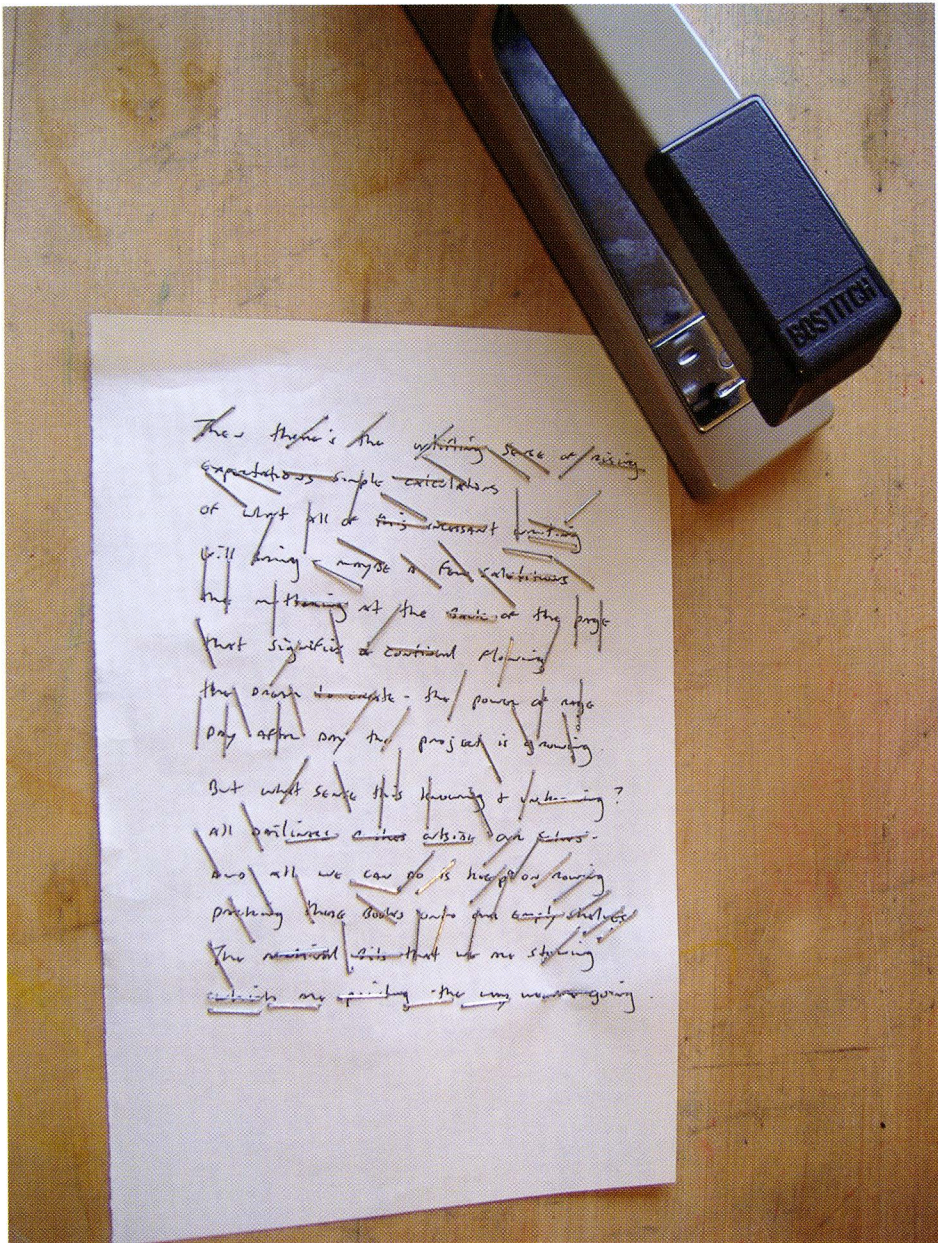 BOSTITCH
Then there's the whirling sense of rising
expectations simple calculations
of what all of this incessant writing
will bring - maybe a few salutions
the at the back of the page
that signifies a continual flowing
the dream to create - the power of rage
Day after day the project is growing.
But what sense this knowing & unknowing?
All outside our
And all we can do is keep on rowing
pushing these books onto our empty shelves
The residual bits that we are
which are pointing the way we're going.